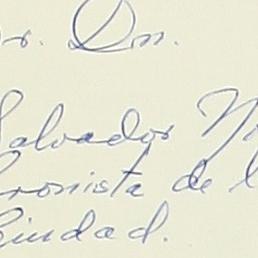 r. Dn.
Salvador
Cronista de l
Ciudad.